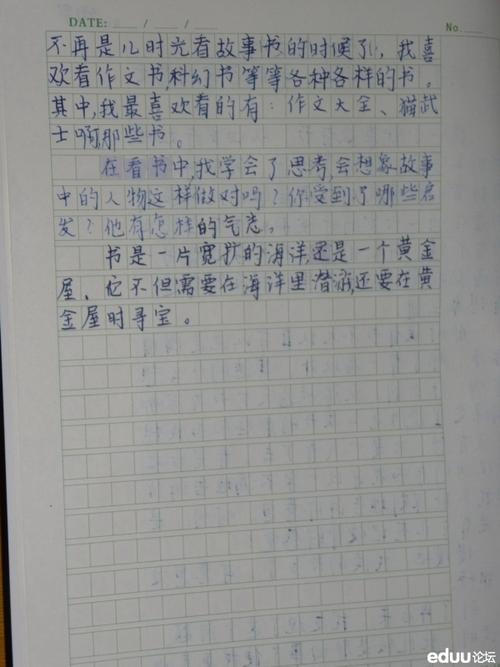 DATE: / /
No.
不再是儿时光看故事书的时候了，我喜
欢看作文书,科幻书等等各种各样的书。
其中,我最喜欢看的有：作文大全、猫武
士啊,那些书。
在看书中,我学会了思考,会想象故事
中的人物这样做对吗？你受到了哪些启
发？他有怎样的气
书是一片宽扩的海洋,还是一个黄金
屋、它不但需要在海洋里潜泳,还要在黄
金屋时寻宝。
eduu论坛